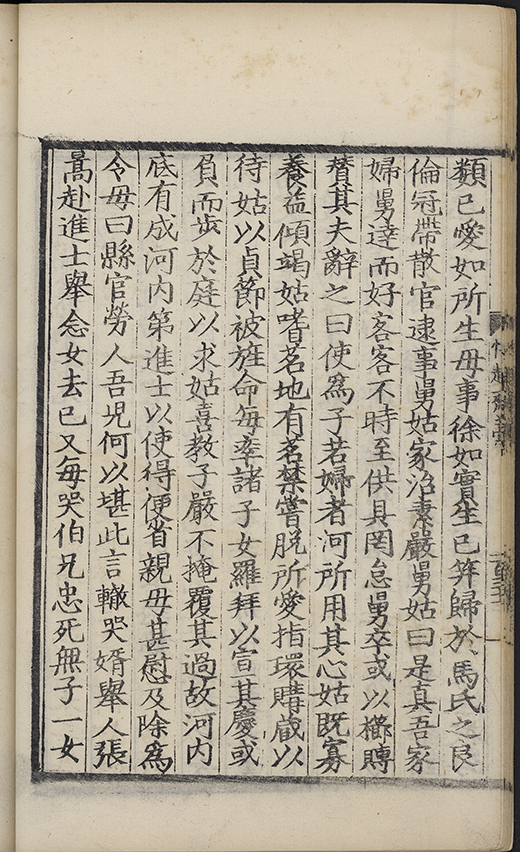 類已愛如所生母事徐如實生已笄歸於馬氏之良
倫冠帶散官逮事舅姑家治素嚴舅姑曰是真吾家
婦舅達而好客客不時至供具罔怠舅卒或以櫛賻
賛其夫辭之曰使為子若婦者河所用其心姑既寡
養益傾竭姑嗜茗地有茗禁嘗脫所愛指環購蔵以
待姑以貞節被旌命每率諸子女羅拜以宣其慶或
負而步於庭以求姑喜教子嚴不掩覆其過故河内
底有成河内第進士以使得便省親母甚慰及除為
令母曰縣官勞人吾児何以堪此言轍哭婿舉人張
暠赴進士舉念女去已又每哭伯兄忠死無子一女